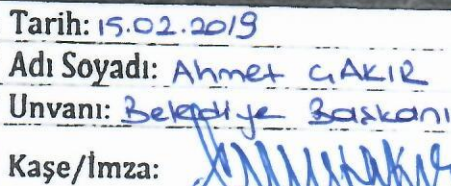 Tarih: 15.02.2019
Adı Soyadı: Ahmet ÇAKIR
Unvanı: Belediye Başkanı
Kaşe/İmza: